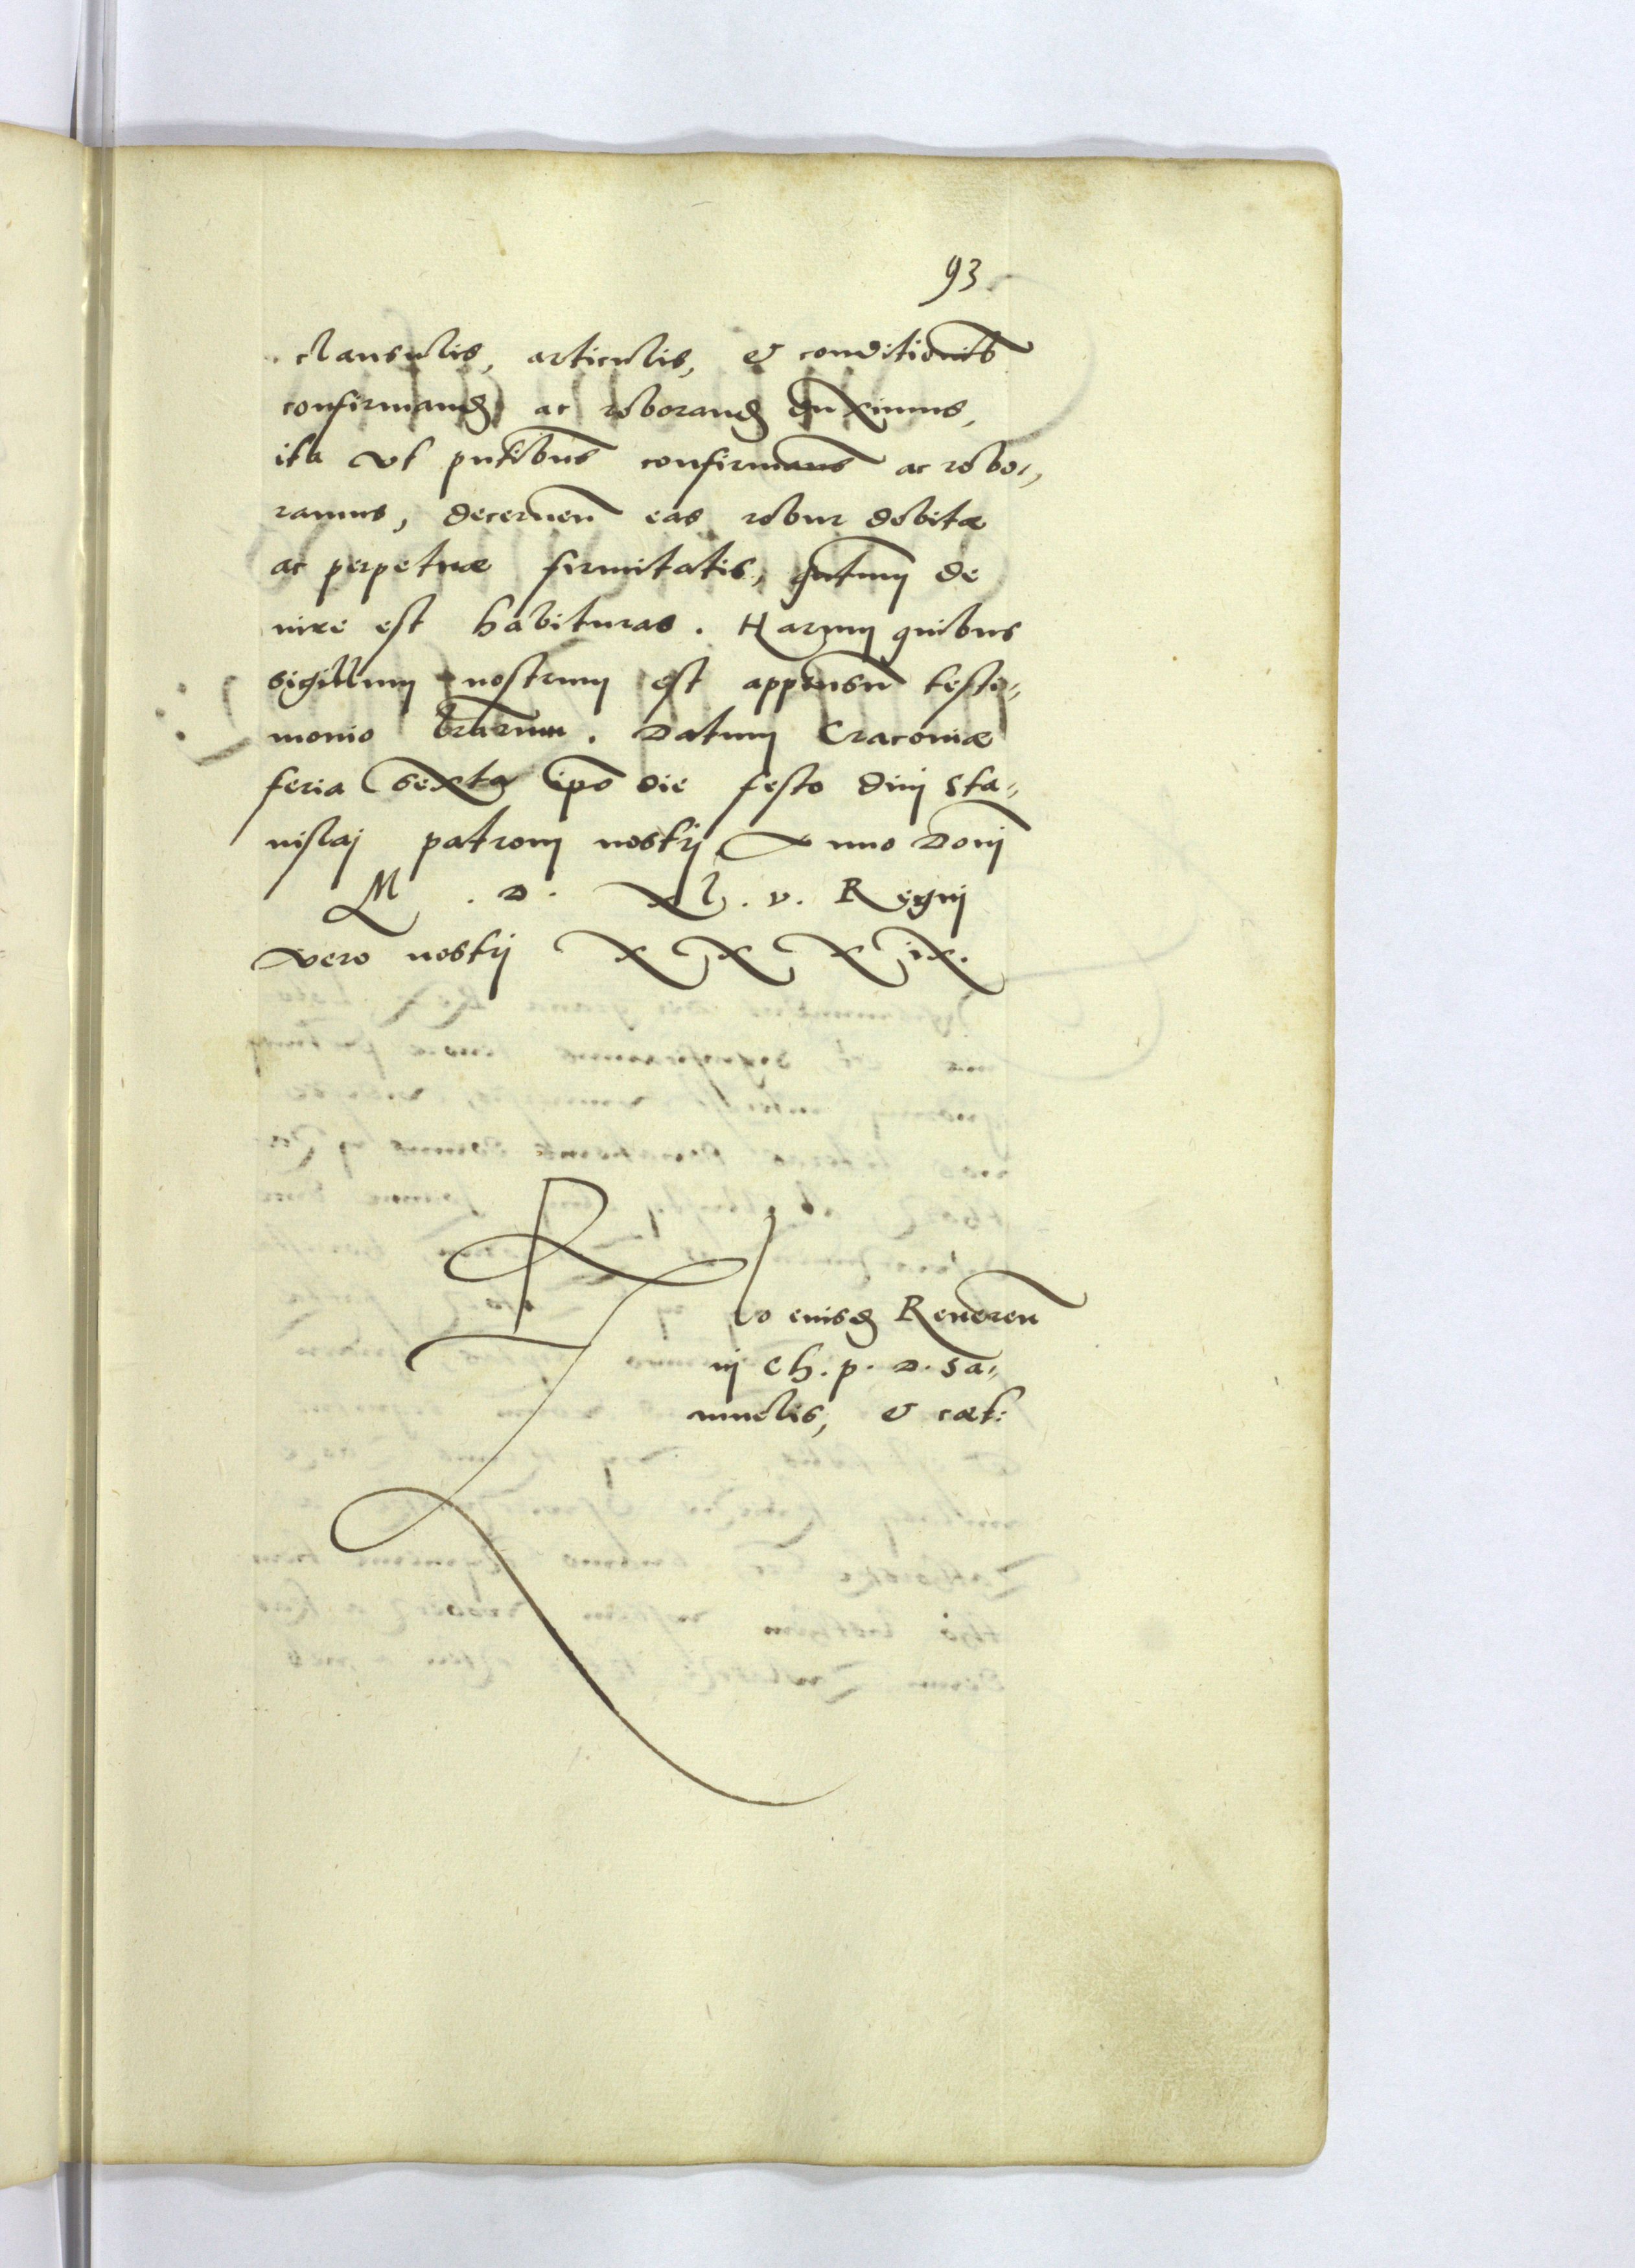 93
clausulis, articulis, & conditionib
confirmand ac roborand duximus,
ita ut pntibus confirmams ac robo-
ramus, decernen eas robur debitæ
ac perpetuæ firmitatis, qntum de
iure est habituras. Harum quibus
sigillum nostrum est appensu testi-
monio lrarum. Datum Cracoviæ
feria sexta ipo die festo divi Sta-
nislaj patroni nostrj Anno Domj
M. D. XL. v. Regni
vero nostrj XXXIX.
R lo eiusd Reveren
ij Ch. p. D. Sa-
muelis, & cæt: